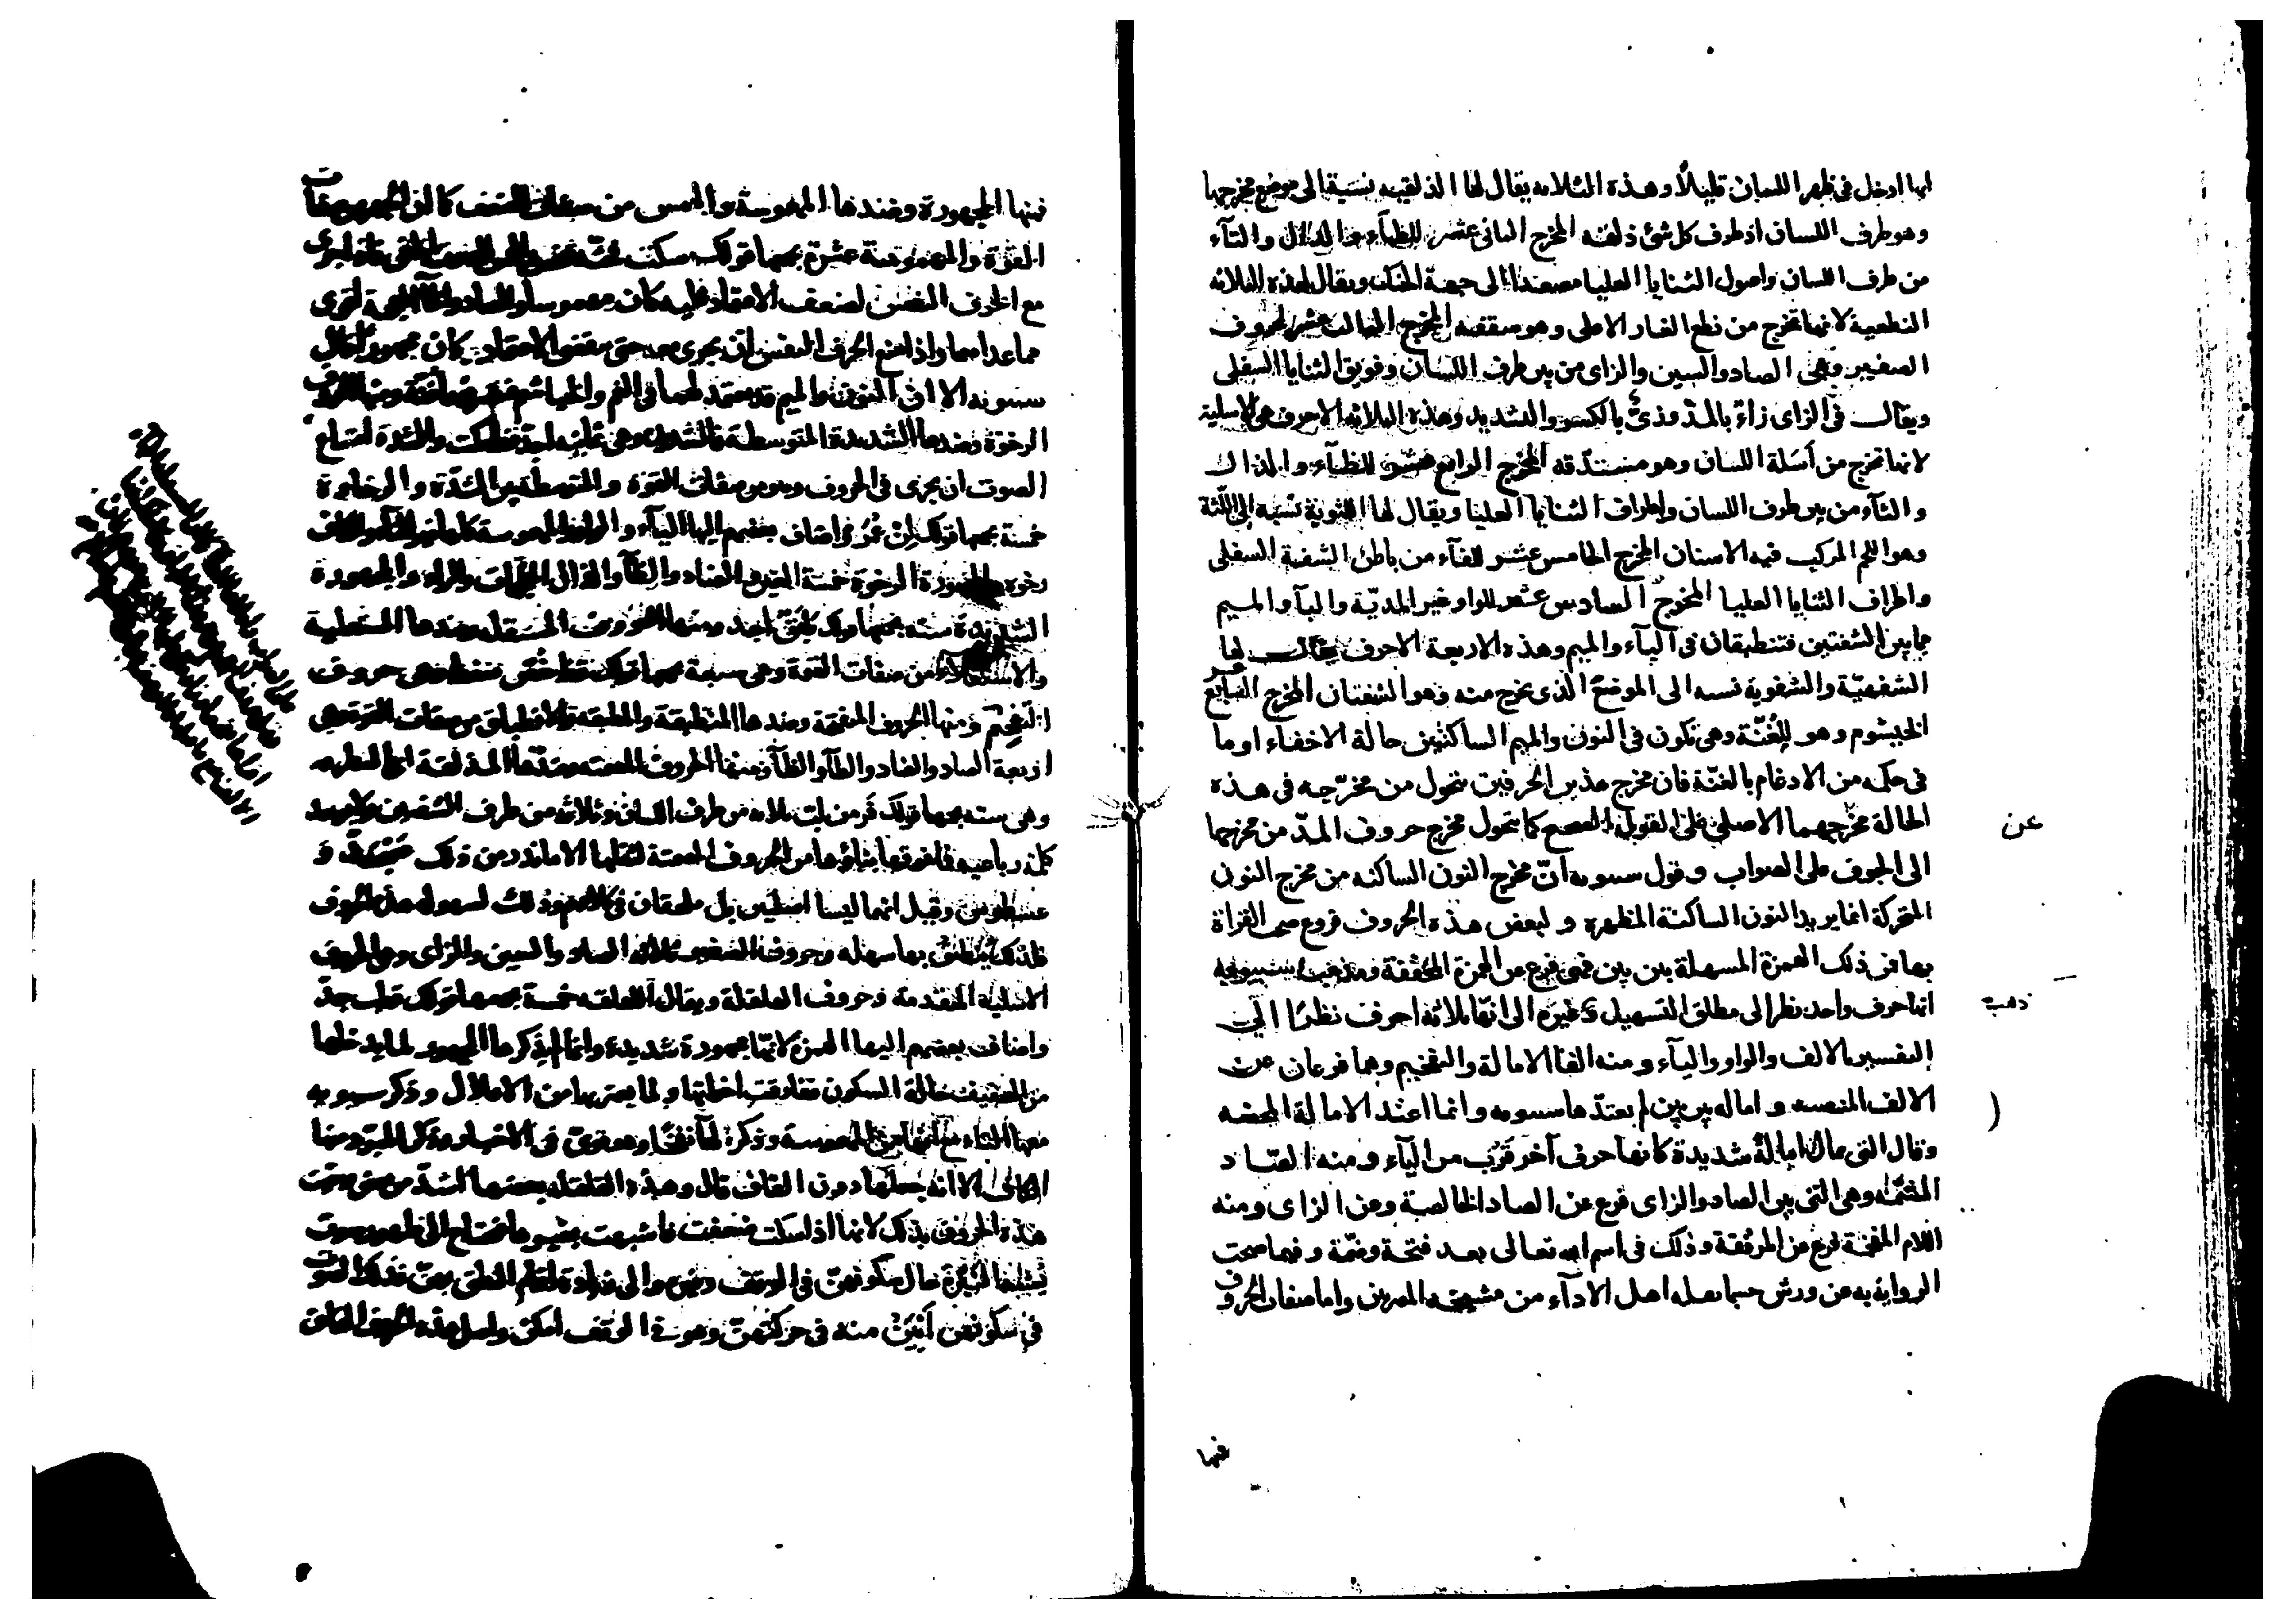 انها ادخل في ظهر اللسان قليلاً وهذه الثلاثة يقال لها الذلقية نسبة الى موضع مخرجها
وهو طرف اللسان اذ طرف كل شئ ذلقه المخرج الثاني عشر للطاء والدال والتاء
من طرف اللسان واصول الثنايا العليا مصعدا الى جهة الحنك ويقال لهذه الثلاثة
النطعية لانها تخرج من نطع الغار الاعلى وهو سقفه المخرج الثالث عشر لحروف
الصفير وهي الصاد والسين والزاى من بين طرف اللسان وفويق الثنايا السفلى
ويقال في الزاى زاء بالمد وزىّ بالكسر والتشديد وهذه الثلاثة الاحرف هي الاسلية
لانها تخرج من أسلة اللسان وهو مستدقه المخرج الرابع عشر للظاء والذال
والثاء من بين طرف اللسان واطراف الثنايا العليا ويقال لها اللثوية نسبة الى اللثة
وهو اللحم المركب فيه الاسنان المخرج الخامس عشر للفاء من باطن الشفة السفلى
واطراف الثنايا العليا المخرج السادس عشر للواو غير المدّية والباء والميم
مما بين الشفتين فتنطبقان في الباء والميم وهذه الاربعة الاحرف يقال لها
الشفهيّة والشفوية نسبة الى الموضع الذى تخرج منه وهو الشفتان المخرج السابع عشر
الخيشوم وهو للغُنّة وهي تكون في النون والميم الساكنتين حالة الاخفاء او ما
في حكمه من الادغام بالغنّة فان مخرج هذين الحرفين يتحول من مخرجه في هذه
الحالة عن مخرجهما الاصلي على القول الصحيح كما يتحول مخرج حروف المدّ من مخرجها
الى الجوف على الصواب وقول سيبويه انّ مخرج النون الساكنة من مخرج النون
المتحركة انما يريد النون الساكنة المظهرة ولبعض هذه الحروف فروع صحت القراة
بها فمن ذلك الهمزة المسهلة بين بين فهي فرع من الهمزة المحققة ومذهب سيبويه
انها حرف واحد نظرا الى مطلق التسهيل وذهب غيره الى انها ثلاثة احرف نظرا الى
التفسير بالالف والواو والياء ومنه الفا الامالة والتفخيم وهما فرعان عن
الالف المنتصبة وامالة بين بين لم يعتدّها سيبويه وانما اعتد الامالة المحضة
وقال التي تمال امالة شديدة كانها حرف آخر قَرُب من الياء ومنه الصاد
المشمّة وهي التي بين الصاد والزاى فرع عن الصاد الخالصة وعن الزاى ومنه
اللام المفخمة فرع عن المرققة وذلك في اسم الله تعالى بعد فتحة وضمّة وفيما صحت
الرواية به عن ورش حسبما نقله اهل الاداء من مشيخة المصريين واما صفات الحروف
فمنها
فمنها المجهورة وضدها المهموسة والهمس من صفات الضعف كما ان الجهر من صفات
القوة والمهموسة عشرة يجمعها قولك سكت فحثّه شخص
مع الحرف النفس لضعف الاعتماد عليه كان مهموسا
مما عداهما واذا منع الحرف النفس ان يجرى معه حتى ينقضي الاعتماد كان مجهورا قال
سيبويه الا ان النون والميم قد يعتمد لهما في الفم والخياشيم
الرخوة وضدها الشديدة المتوسطة فالشديدة وهي ثمانية اجد قط بكت والشدة امتناع
الصوت ان يجرى في الحروف وهو من صفات القوة والمتوسطة بين الشدّة والرخاوة
خمسة يجمعها قولك لِنْ عُمَرُ واضاف بعضهم اليها الياء والواو والمهموسة كلها غير التاء والكاف
رخوة والمجهورة الرخوة خمسة الغين والضاد والظاء والذال المعجمات والراء والمجهورة
الشديدة ستة يجمعها قولك طبق اجد ومنها الحروف المستفلة وضدها المستعلية
والاستعلاء من صفات القوة وهي سبعة يجمعها قولك قظ خُصّ ضغط وهي حروف
التفخيم ومنها الحروف المنفتحة وضدها المنطبقة والمطبقة والانطباق من صفات القوة وهي
اربعة الصاد والضاد والطاء والظاء ومنها الحروف المصمتة وضدها المذلقة
وهي ستة يجمعها قولك فَر من لب ثلاثة من طرف اللسان وثلاثة من طرف الشفتين ولا يوجد
كلمة رباعية فما فوقها بناؤها من الحروف المصمتة لثقلها الا ما ندر من ذلك عَسْجَد و
عسطوس وقيل انهما ليسا اصليين بل ملحقان في كلامهم وذلك لسهولة هذه الحروف
فلذلك يُنطق بها سهلة وحروف الصفير ثلاثة الصاد والسين والزاى وهي الحروف
الاسلية المتقدمة وحروف القلقلة ويقال اللقلقة خمسة يجمعها قولك قطب جدّ
واضاف بعضهم اليها الهمزة لانها مجهورة شديدة وانما لم يذكرها الجمهور لما يدخلها
من التخفيف حالة السكون ففارقت اخواتها ولما يعتريها من الاعلال وذكر سيبويه
معها التاء مع انها من المهموسة وذكر لها نفخا وهو قوي في الاختبار وذكر المبرد منها
الكاف الا انه جعلها دون القاف قال وهذه القلقلة بعضها اشدّ من بعض وسميت
هذه الحروف بذلك لانها اذا سكنت ضعفت فاشتبهت بغيرها فتحتاج الى ظهور صوت
يشبه النبرة حال سكونهنّ في الوقف وغيره والى زيادة اتمام النطق بهنّ فذلك الصوت
في سكونهن أَبْيَنُ منه في حركتهنّ وهو في الوقف امكن واصل هذه الحروف القاف